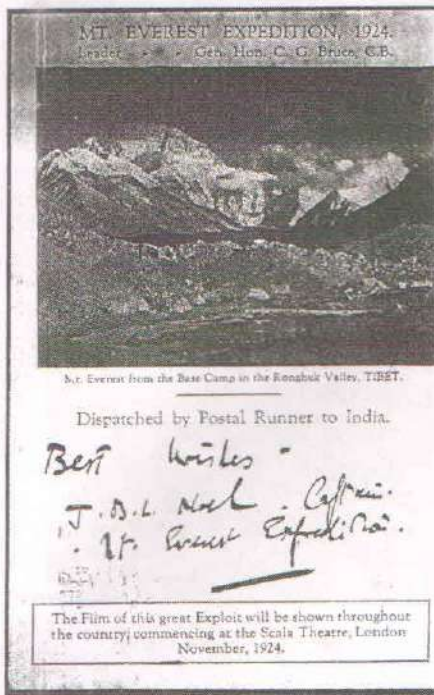 MT. EVEREST EXPEDITION, 1924.
Leader - Gen. Hon. C. G. Bruce, C.B.
Mt. Everest from the Base Camp in the Rongbuk Valley, TIBET.
Dispatched by Postal Runner to India.
Best Wishes -
J. B. L. Noel. Captain.
Mt. Everest Expedition.
The Film of this great Exploit will be shown throughout
the country, commencing at the Scala Theatre, London
November, 1924.